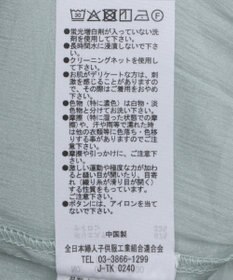 ●蛍光増白剤が入っていない洗
剤を使用して下さい。
●長時間水に浸漬しないで下さ
い。
●クリーニングネットを使用し
て下さい。
●お肌がデリケートな方は、刺
激を感じることがありますの
で、その際はご着用をおやめ
下さい。
●色物（特に濃色）は白物・淡
色物と分けてお洗い下さい。
●摩擦（特に湿った状態での摩
擦）や、汗や雨等で濡れた時
は他の衣類等に色落ち・色移
りする事がありますのでご注
意下さい。
●摩擦や引っかけに、ご注意下
さい。
●激しい運動や極度な力が加わ
ると縫い目が開いたり、目寄
れ（織り糸が滑り目が開く）
する性質をもっています。
ご注意下さい。
●ボタンには、アイロンを当て
ないで下さい。
中国製
全日本婦人子供服工業組合連合会
TEL 03-3866-1299
J-TK 0240